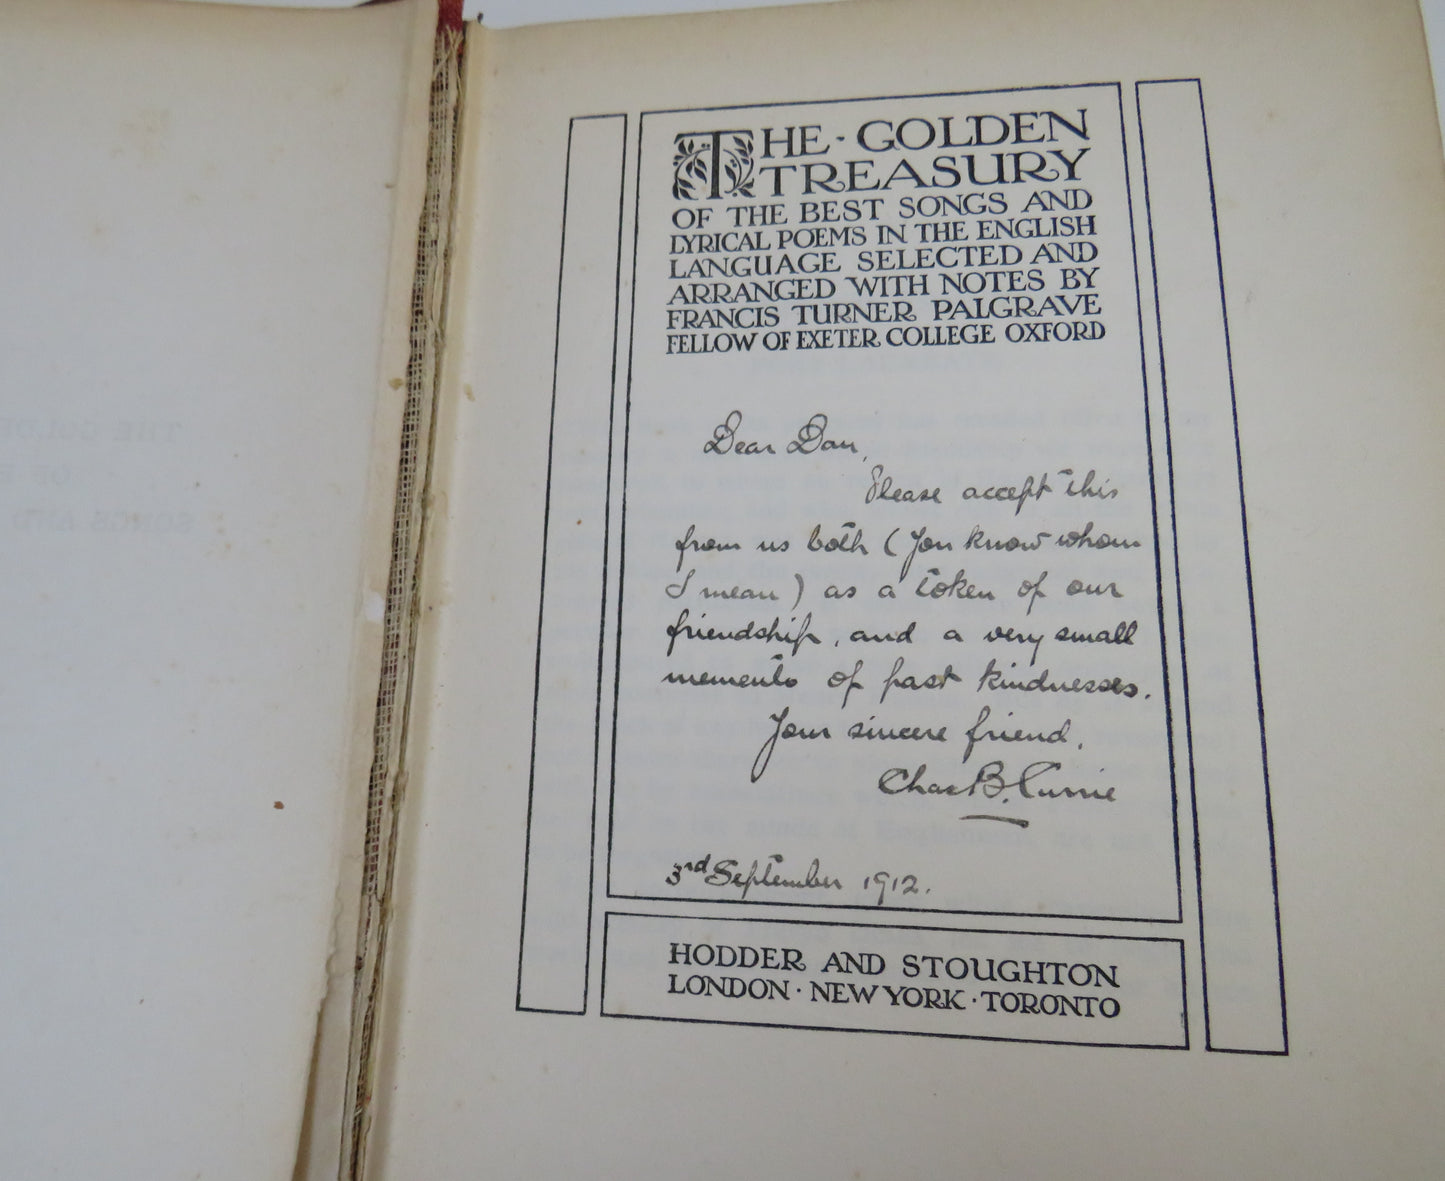 THE · GOLDEN
TREASURY
OF THE BEST SONGS AND
LYRICAL POEMS IN THE ENGLISH
LANGUAGE SELECTED AND
ARRANGED WITH NOTES BY
FRANCIS TURNER PALGRAVE
FELLOW OF EXETER COLLEGE OXFORD
Dear Dan,
Please accept this
from us both (you know whom
I mean) as a token of our
friendship, and a very small
memento of past kindnesses.
Your sincere friend,
Chas B. Currie
3rd September 1912.
HODDER AND STOUGHTON
LONDON · NEW YORK · TORONTO
THE GOLDE
OF E
SONGS AND